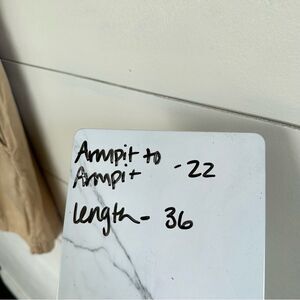 Armpit to
Armpit - 22
length - 36